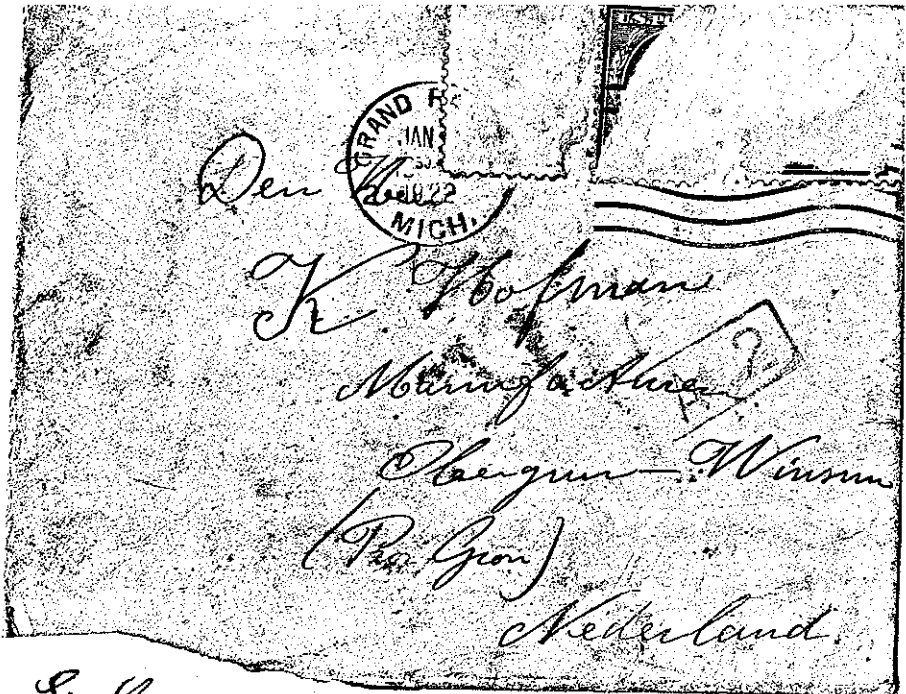 GRAND R
JAN
1922
MICH.
Den Heer
K. Hofman
Manufacturen
Obergum — Winsum
(Pro Gron)
Nederland.
A ?